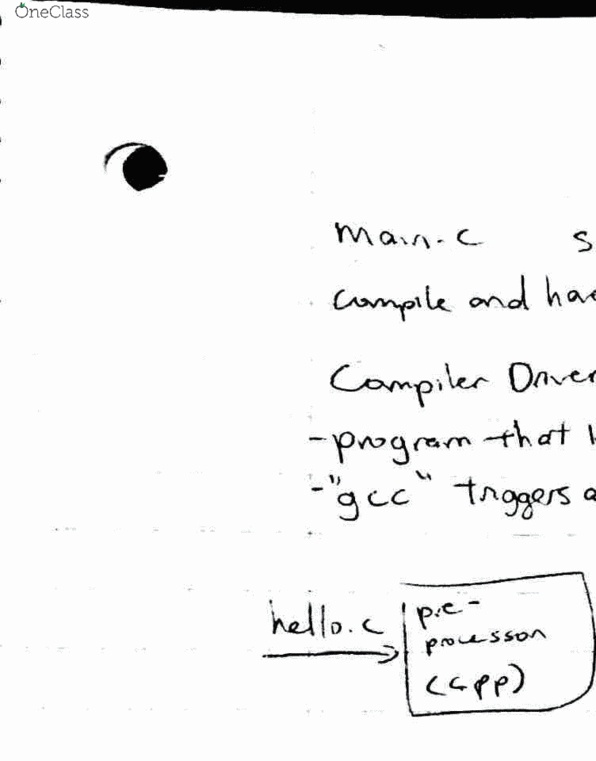 OneClass
main.c s
compile and hav
Compiler Driver
-program that
-"gcc" triggers a
hello.c
pre-
processor
(cpp)